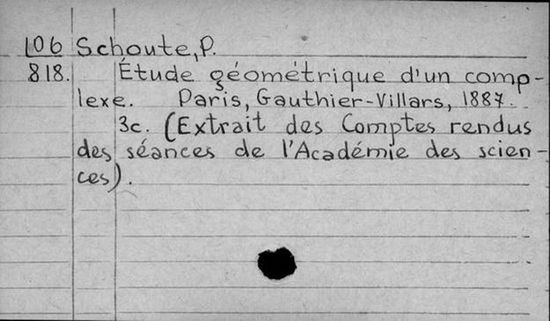 106 Schoute, P.
818. Étude géométrique d'un comp-
lexe. Paris, Gauthier-Villars, 1887.
3c. (Extrait des Comptes rendus
des séances de l'Académie des scien-
ces).